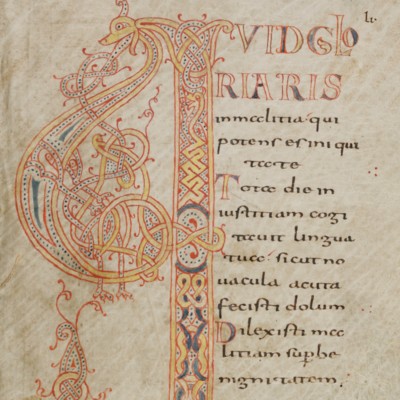 QVID GLO
RIARIS
inmalitia · qui
potens es iniqui
tate
Tota die in
iustitiam cogi
tauit lingua
tua · sicut no
uacula acuta
fecisti dolum
Dilexisti ma
litiam sup̄ be
nignitatem ·